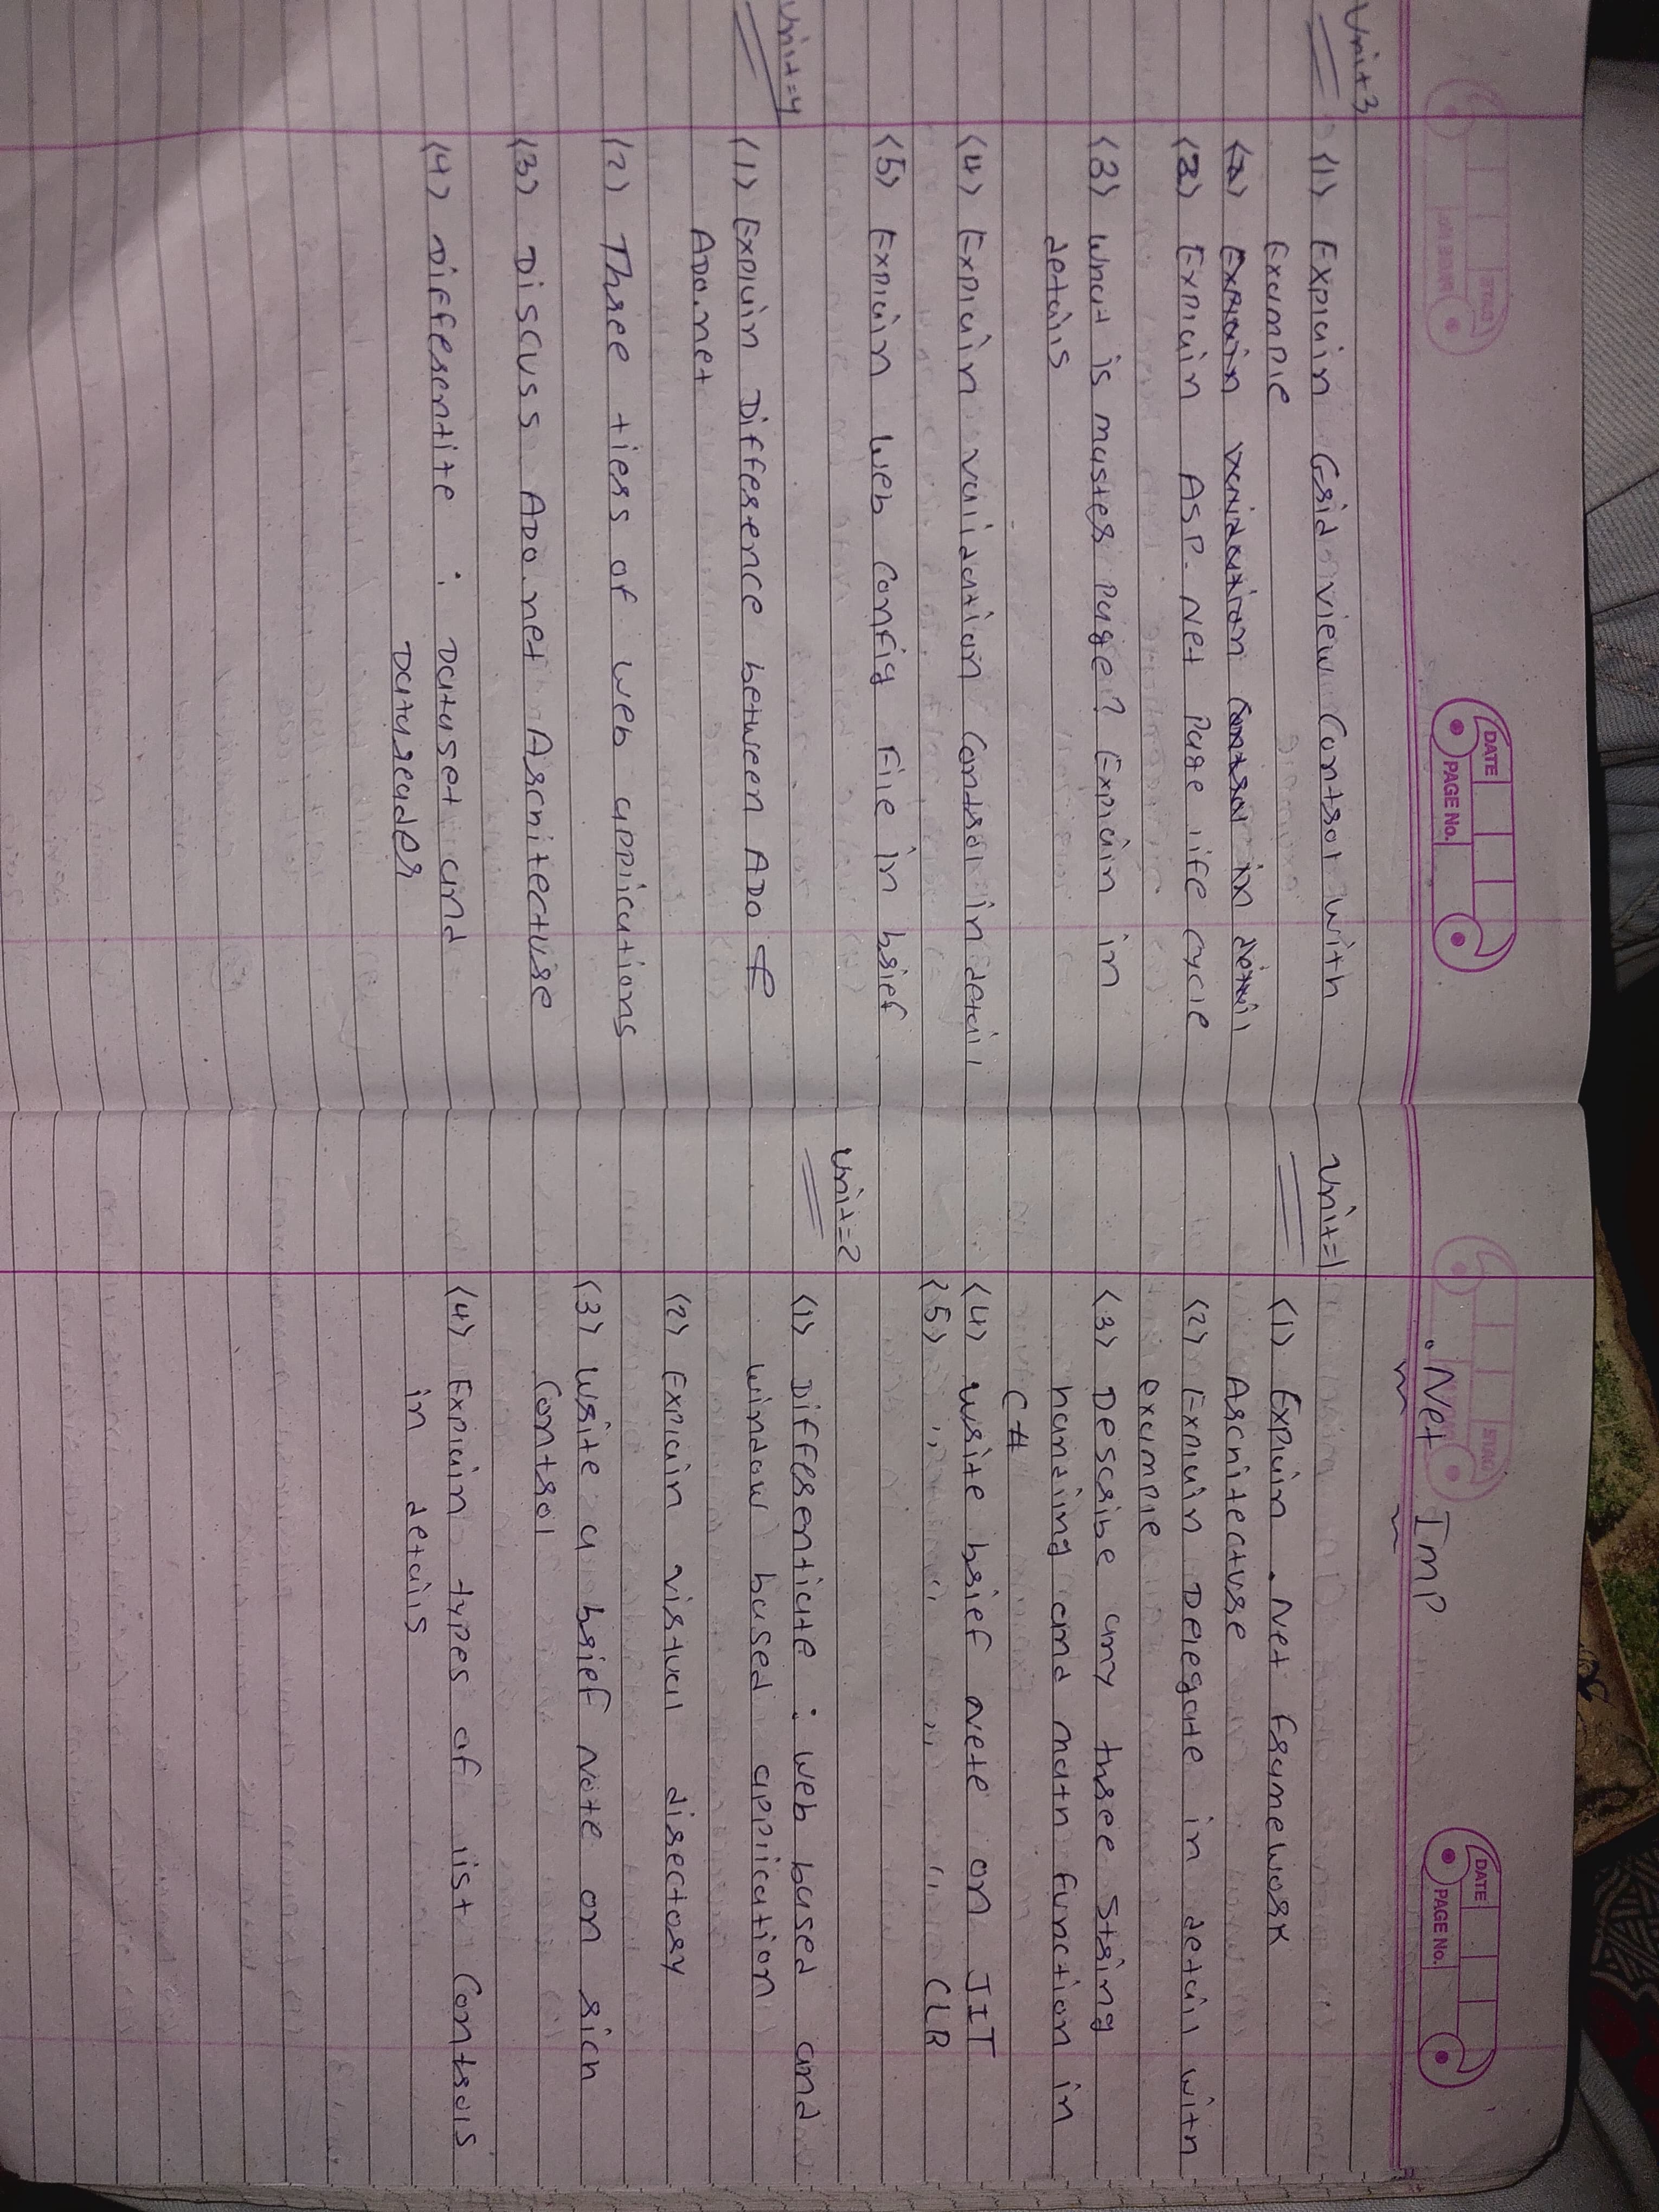 DATE
PAGE No.
Unit 3
(1) Explain Grid view Control with
Example
(2) Explain validation Control in detail
(2) Explain ASP. Net Page life cycle
(3) What is master Page? Explain in
details
(4) Explain validation Control in detail
(5) Explain Web Config File in brief
Unit=4
(1) Explain Difference between ADO &
ADO.net
(2) Three tiers of web applications
(3) Discuss ADO.net Architecture
(4) Differentite : Dataset and
Datareader
DATE
PAGE No.
.Net Imp
Unit=1
(1) Explain .Net Framework
Architecture
(2) Explain Delegate in detail with
example
(3) Describe any three String
handling and math function in
C#
(4) write brief Nete on JIT
(5) ,, ,, ,, ,, CLR
Unit=2
(1) Differentiate : Web based and
window based application
(2) Explain virtual directory
(3) Write a brief Note on rich
Control
(4) Explain types of list Controls
in details